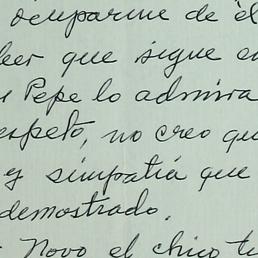 ocuparme de él
leer que sigue e
Pepe lo admira
espeto, no creo qu
y simpatía que
demostrado.
Novo el chico tu